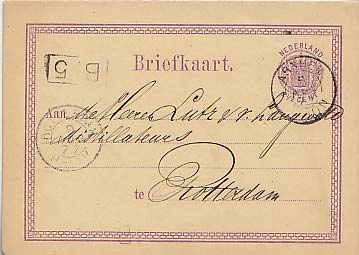 NEDERLAND
Briefkaart.
B
5
ARNHEM
Aan de Heeren Lutz & v.
Distillateurs
te Rotterdam